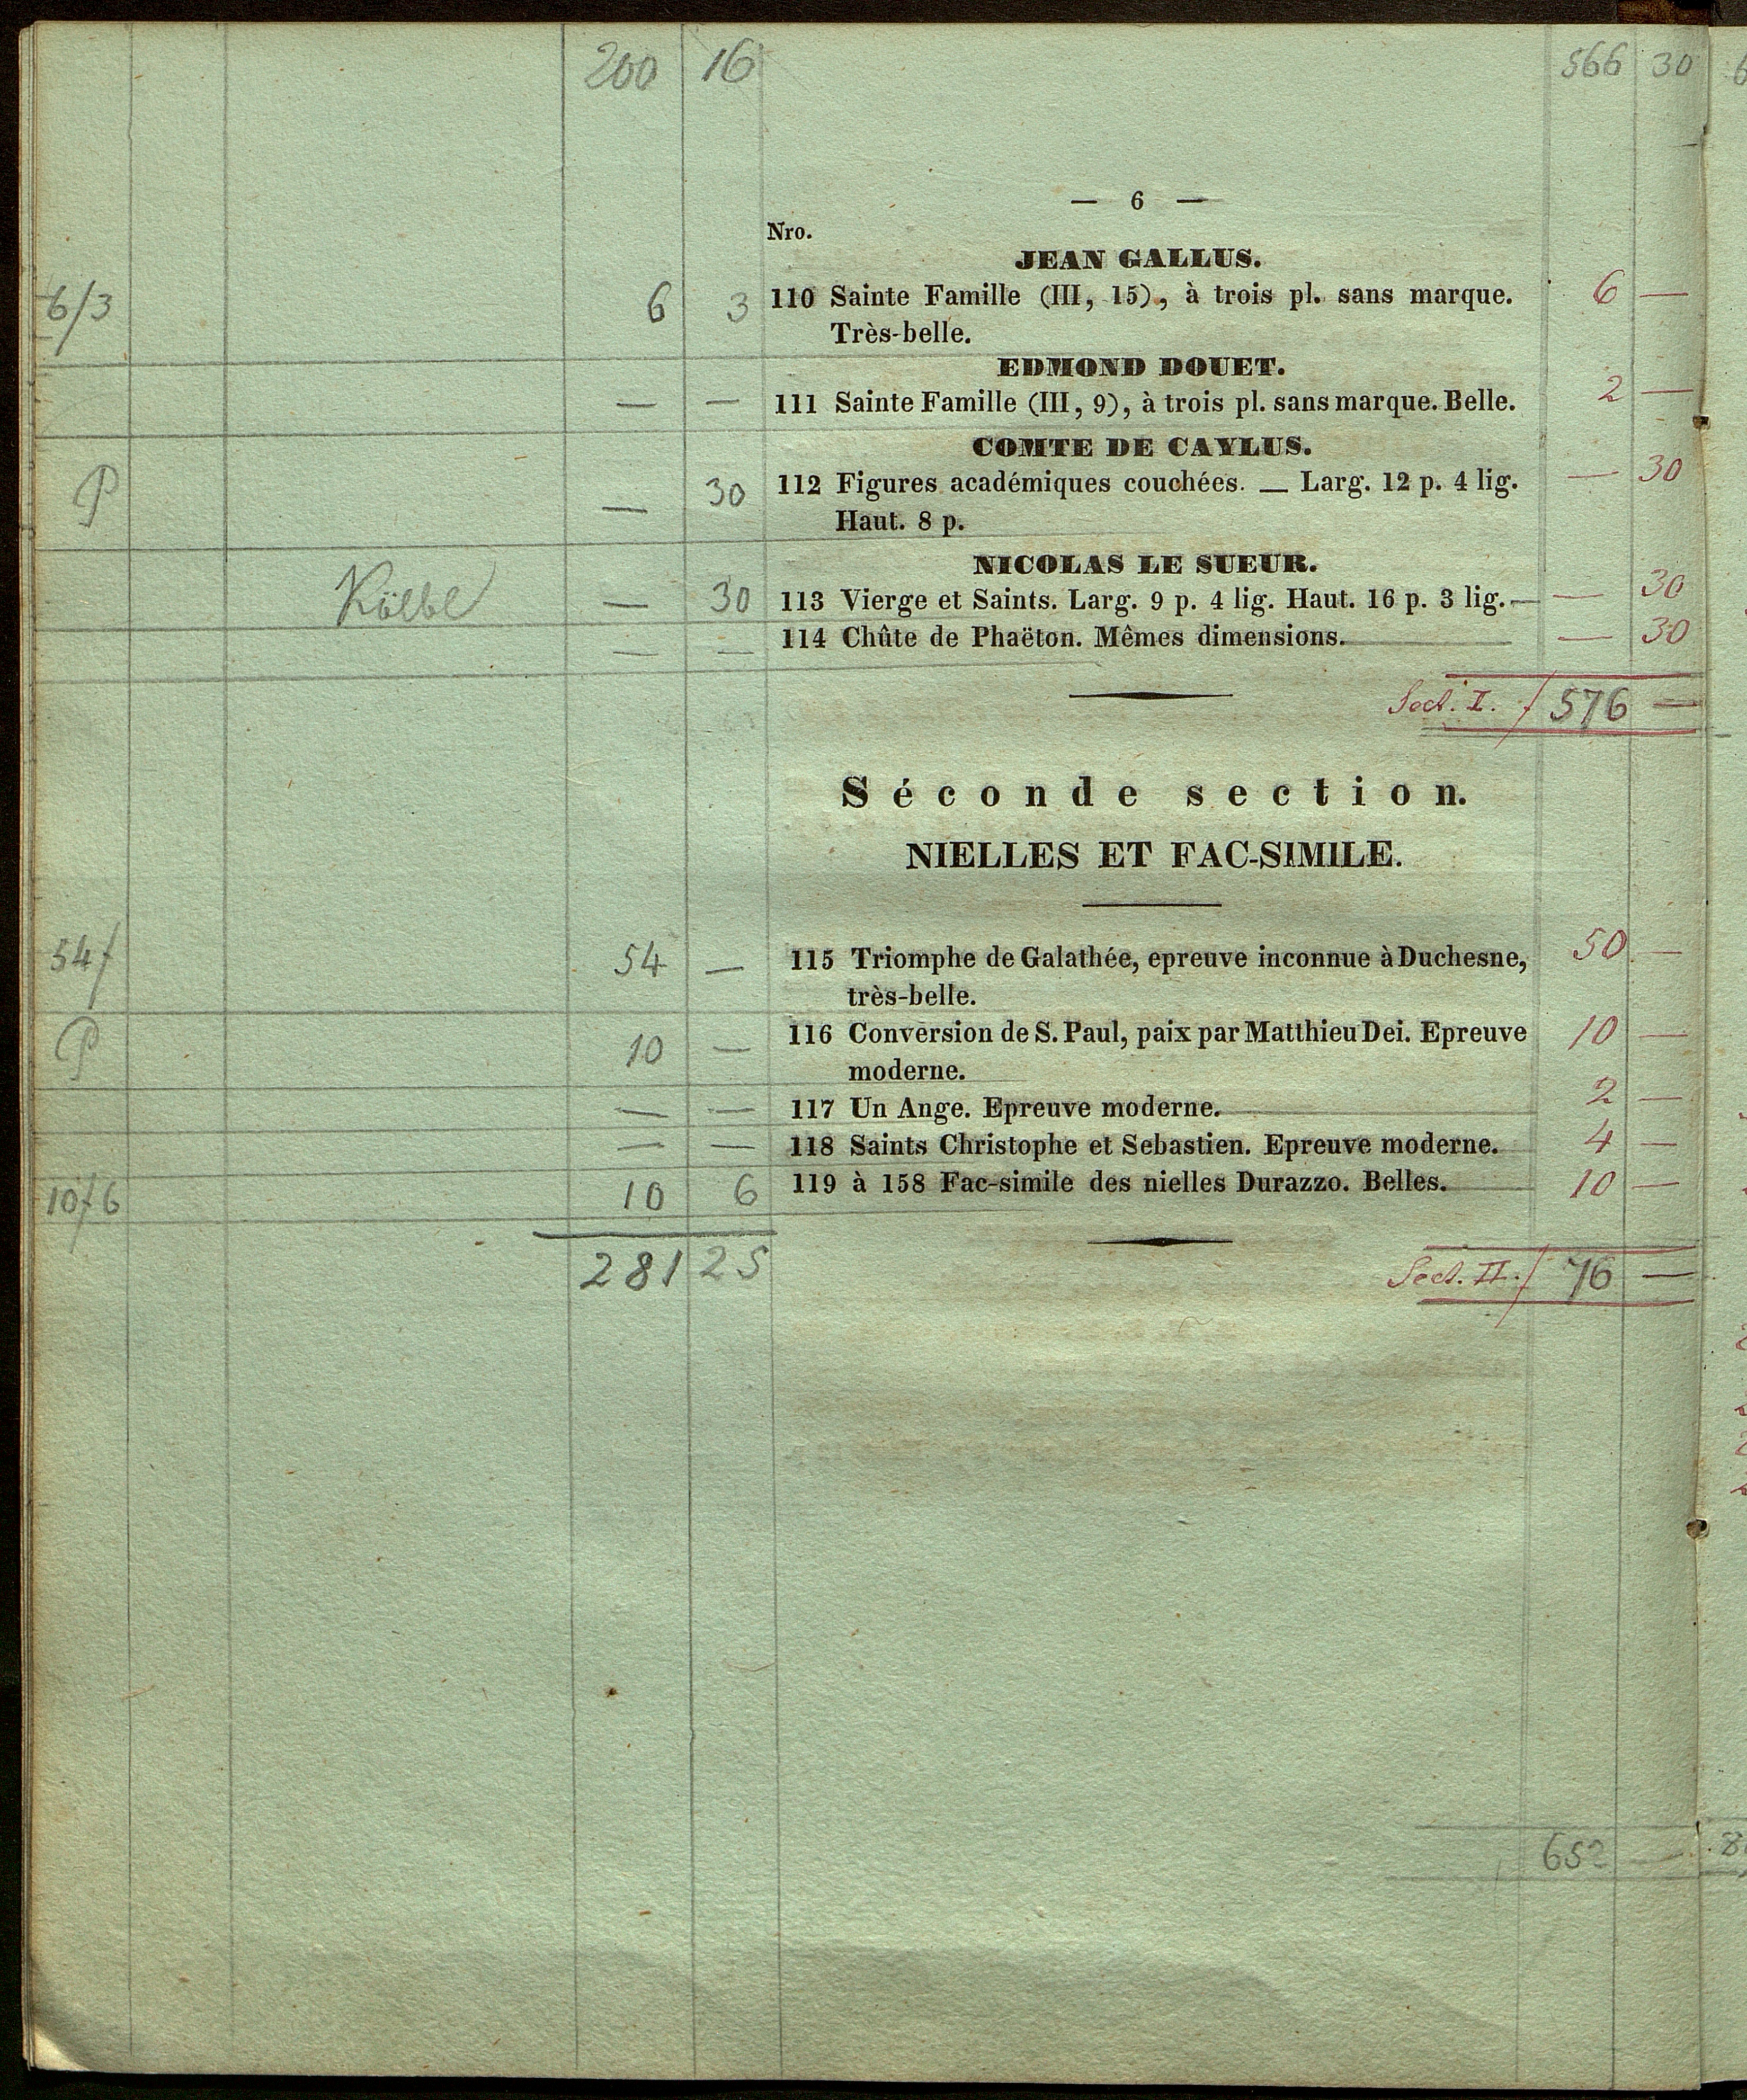 200 16 566 30
— 6 —
Nro.
JEAN GALLUS.
6/3 6 3 110 Sainte Famille (III, 15), à trois pl. sans marque. 6 —
Très-belle.
EDMOND DOUET.
— — 111 Sainte Famille (III, 9), à trois pl. sans marque. Belle. 2 —
COMTE DE CAYLUS.
P — 30 112 Figures académiques couchées. — Larg. 12 p. 4 lig. — 30
Haut. 8 p.
NICOLAS LE SUEUR.
Kölbl — 30 113 Vierge et Saints. Larg. 9 p. 4 lig. Haut. 16 p. 3 lig. — — 30
— — 114 Chûte de Phaëton. Mêmes dimensions. — 30
Sect. I. f 576 —
Séconde section.
NIELLES ET FAC-SIMILE.
54f 54 — 115 Triomphe de Galathée, epreuve inconnue à Duchesne, 50 —
très-belle.
P 10 — 116 Conversion de S. Paul, paix par Matthieu Dei. Epreuve 10 —
moderne.
— — 117 Un Ange. Epreuve moderne. 2 —
— — 118 Saints Christophe et Sebastien. Epreuve moderne. 4 —
10f6 10 6 119 à 158 Fac-simile des nielles Durazzo. Belles. 10 —
281 25
Sect. II. f 76 —
652 —